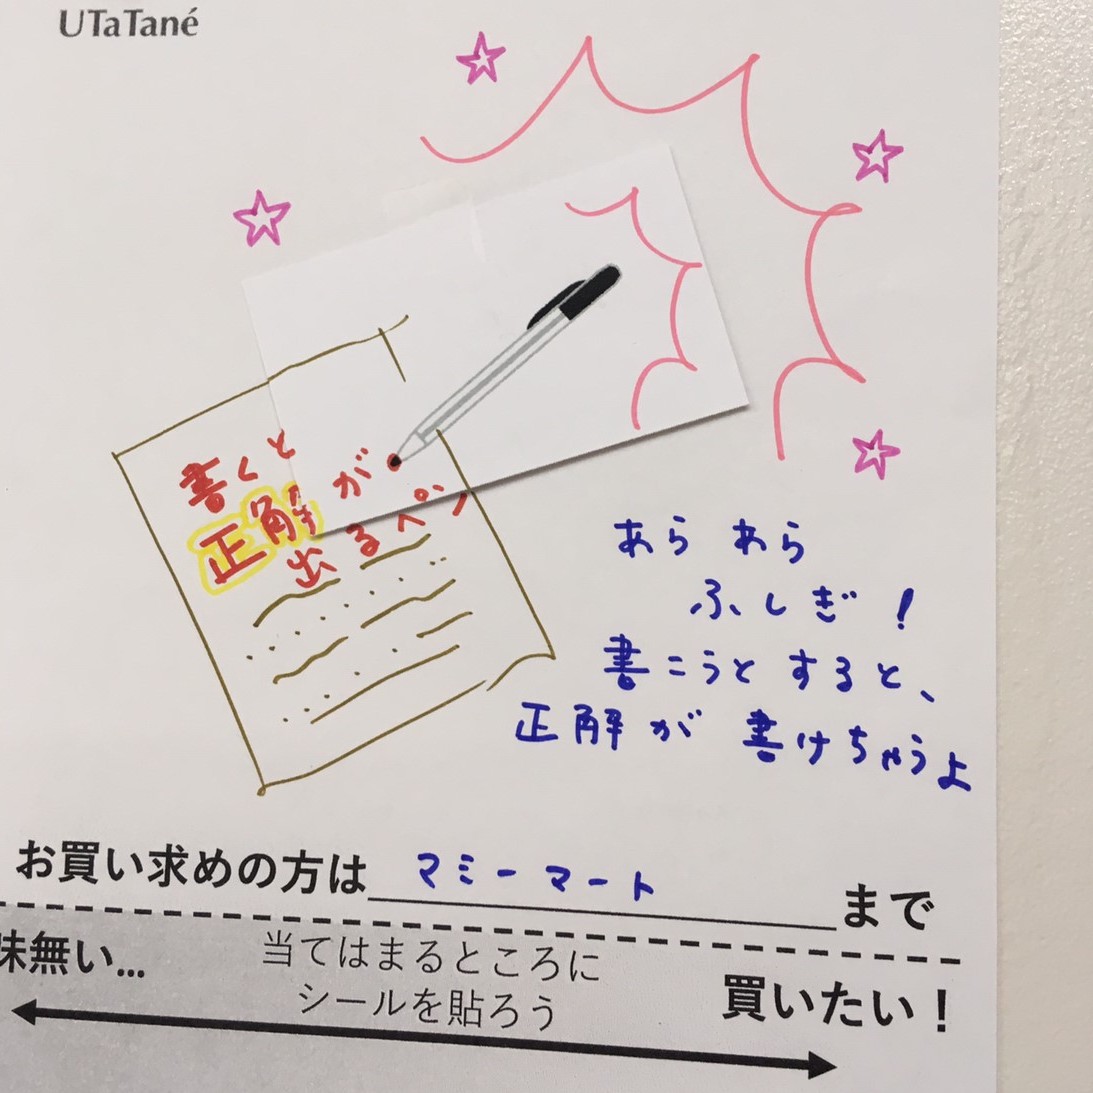 UTaTané
書くと
正解が
出るペン
あらあら
ふしぎ!
書こうとすると、
正解が書けちゃうよ
お買い求めの方はマミーマートまで
味無い...
当てはまるところに
シールを貼ろう
買いたい!